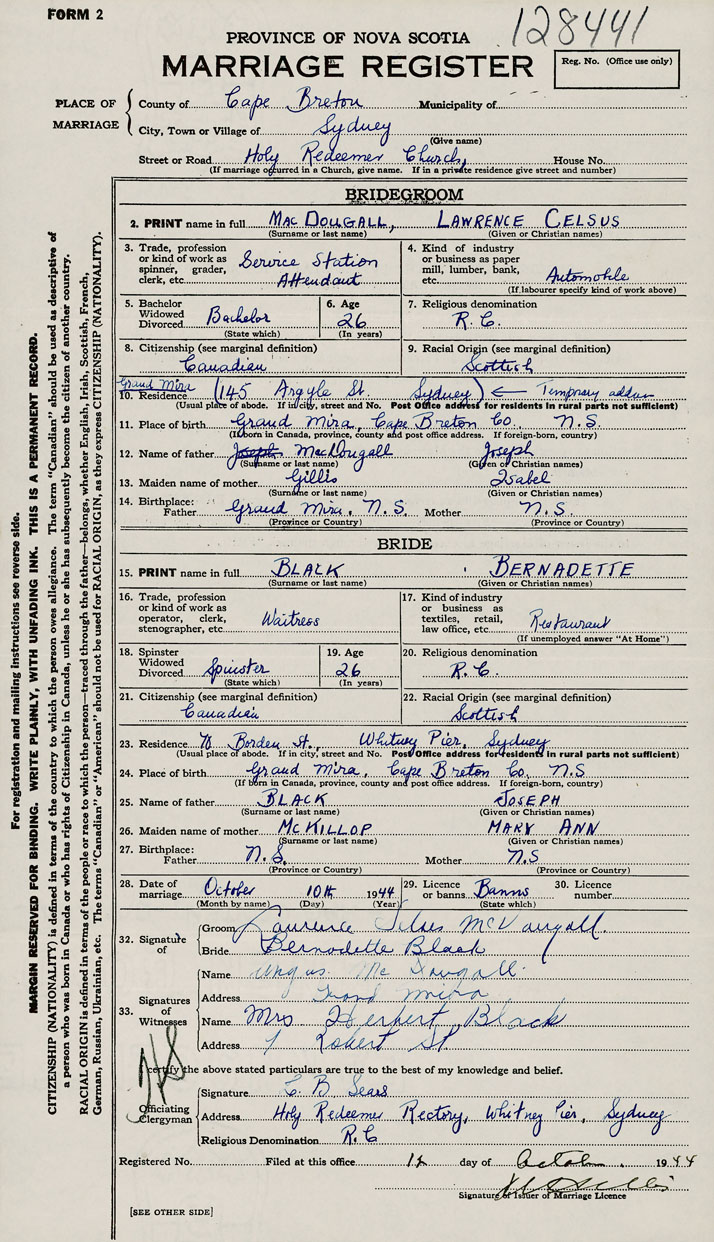 FORM 2
128441
PROVINCE OF NOVA SCOTIA
MARRIAGE REGISTER
Reg. No. (Office use only)
PLACE OF MARRIAGE
County of Cape Breton Municipality of
City, Town or Village of Sydney
(Give name)
Street or Road Holy Redeemer Church, House No.
(If marriage occurred in a Church, give name. If in a private residence give street and number)
BRIDEGROOM
2. PRINT name in full MacDOUGALL, LAWRENCE CELSUS
(Surname or last name) (Given or Christian names)
3. Trade, profession or kind of work as spinner, grader, clerk, etc. Service Station Attendant
4. Kind of industry or business as paper mill, lumber, bank, etc. Automobile
(If labourer specify kind of work above)
5. Bachelor Widowed Divorced Bachelor
(State which)
6. Age 26
(In years)
7. Religious denomination R.C.
8. Citizenship (see marginal definition) Canadian
9. Racial Origin (see marginal definition) Scottish
10. Residence Grand Mira (145 Argyle St. Sydney) ← Temporary
(Usual place of abode. If in city, street and No. Post Office address for residents in rural parts not sufficient)
11. Place of birth Grand Mira, Cape Breton Co. N.S.
(If born in Canada, province, county and post office address. If foreign-born, country)
12. Name of father Joseph MacDougall Joseph
(Surname or last name) (Given or Christian names)
13. Maiden name of mother Gillis Isabel
(Surname or last name) (Given or Christian names)
14. Birthplace: Father Grand Mira, N.S. Mother N.S.
(Province or Country) (Province or Country)
BRIDE
15. PRINT name in full BLACK BERNADETTE
(Surname or last name) (Given or Christian names)
16. Trade, profession or kind of work as operator, clerk, stenographer, etc. Waitress
17. Kind of industry or business as textiles, retail, law office, etc. Restaurant
(If unemployed answer "At Home")
18. Spinster Widowed Divorced Spinster
(State which)
19. Age 26
(In years)
20. Religious denomination R.C.
21. Citizenship (see marginal definition) Canadian
22. Racial Origin (see marginal definition) Scottish
23. Residence Borden St., Whitney Pier, Sydney
(Usual place of abode. If in city, street and No. Post Office address for residents in rural parts not sufficient)
24. Place of birth Grand Mira, Cape Breton Co, N.S
(If born in Canada, province, county and post office address. If foreign-born, country)
25. Name of father BLACK JOSEPH
(Surname or last name) (Given or Christian names)
26. Maiden name of mother McKILLOP MARY ANN
(Surname or last name) (Given or Christian names)
27. Birthplace: Father N.S. Mother N.S
(Province or Country) (Province or Country)
28. Date of marriage October 10th 1944
(Month by name) (Day) (Year)
29. Licence or banns Banns
(State which)
30. Licence number
32. Signature of
Groom
Bride Bernadette Black
33. Signatures of Witnesses
Name Angus Mc Dougall
Address Grand Mira
Name Mrs Herbert Black
Address 7 Robert St
I certify the above stated particulars are true to the best of my knowledge and belief.
Officiating Clergyman
Signature C. B Sears
Address Holy Redeemer Rectory, Whitney Pier, Sydney
Religious Denomination R.C
Registered No. Filed at this office 12 day of 1944
Signature of Issuer of Marriage Licence
[SEE OTHER SIDE]
For registration and mailing instructions see reverse side.
MARGIN RESERVED FOR BINDING. WRITE PLAINLY, WITH UNFADING INK. THIS IS A PERMANENT RECORD.
CITIZENSHIP (NATIONALITY) is defined in terms of the country to which the person owes allegiance. The term "Canadian" should be used as descriptive of
a person who was born in Canada or who has rights of Citizenship in Canada, unless he or she has subsequently become the citizen of another country.
RACIAL ORIGIN is defined in terms of the people or race to which the person—traced through the father—belongs, whether English, Irish, Scottish, French,
German, Russian, Ukrainian, etc. The terms "Canadian" or "American" should not be used for RACIAL ORIGIN, as they express CITIZENSHIP (NATIONALITY).